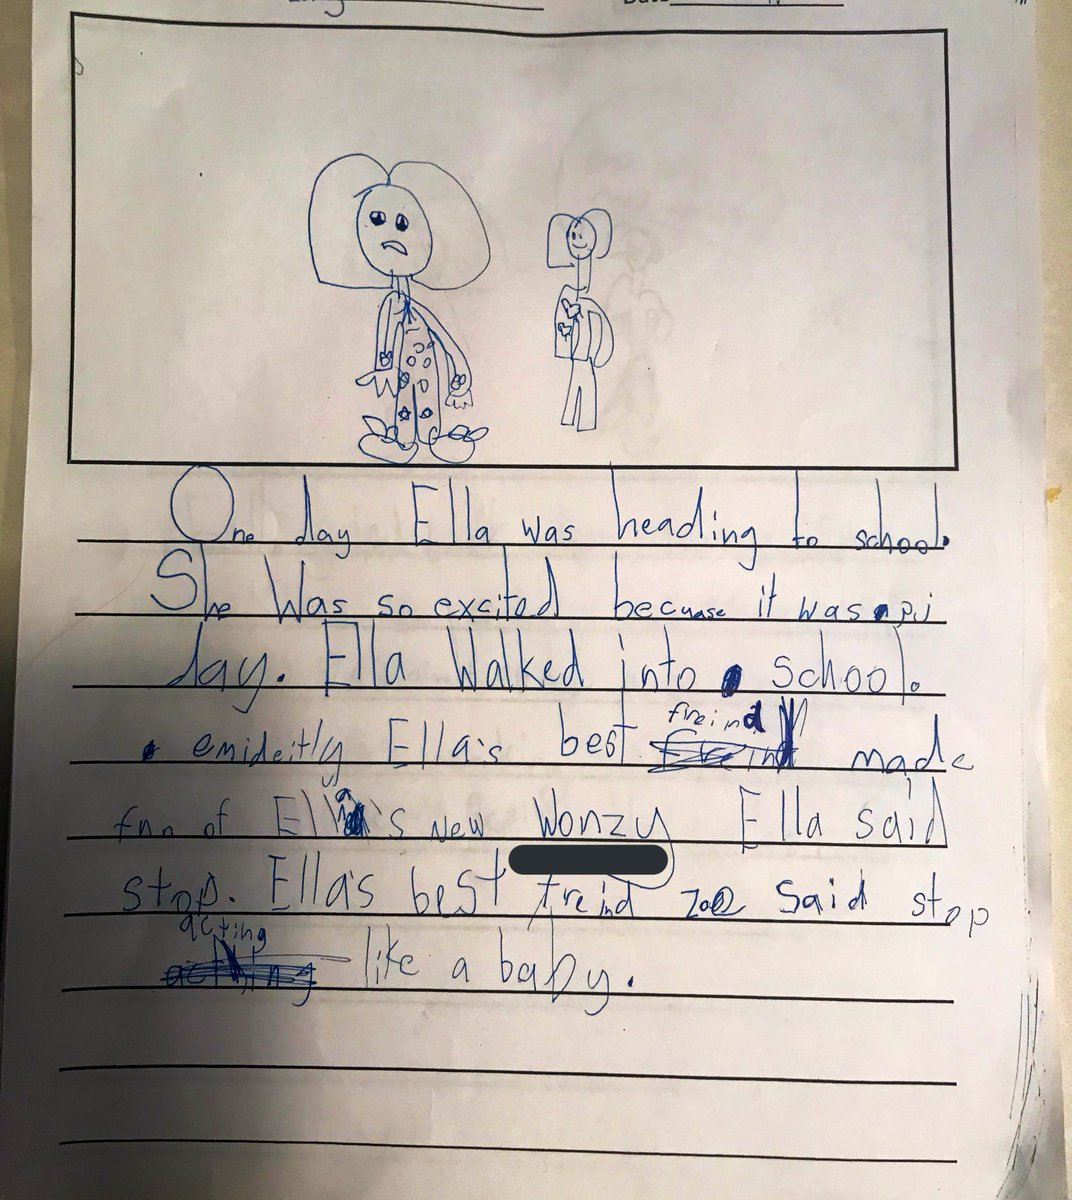 Date
One day Ella was heading to school.
She Was so excited becuase it was pj
day. Ella Walked into school.
emideitly Ella's best freind made
fun of Ella's new Wonzy Ella said
stop. Ella's best freind zoe said stop
acting like a baby.